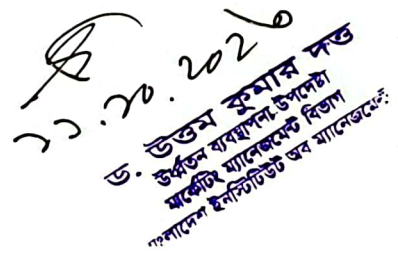 ২২.১০.২০২৩
ড. উত্তম কুমার দত্ত
ঊর্ধ্বতন ব্যবস্থাপনা উপদেষ্টা
মার্কেটিং ম্যানেজমেন্ট বিভাগ
বাংলাদেশ ইনস্টিটিউট অব ম্যানেজমেন্ট